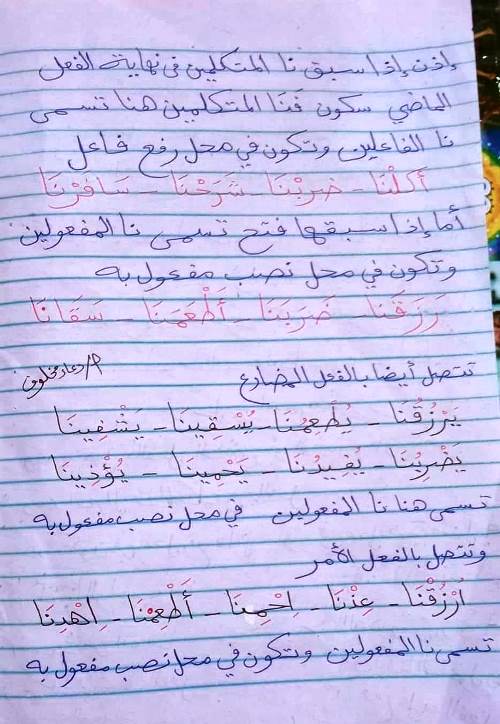 إذن إذا سبق نا المتكلمين في نهاية الفعل
الماضي سكون فَنَا المتكلمين هنا تسمى
نا الفاعلين وتكون في محل رفع فاعل
أَكَلْنَا - ضربْنَا - شَرَحْنَا - سَافَرْنَا
أما إذا سبقها فتح تسمى نا المفعولين
وتكون في محل نصب مفعول به
رَزَقَنَا - ضَرَبَنَا - أَطْعَمَنَا - سَقَانَا
تتصل أيضا بالفعل المضارع
يَرْزُقُنَا - يُطَعِمُنَا - يُسْقِينَا - يَشْفِينَا
يَضْرِبُنَا - يُفِيدُنَا - يَحْمِينَا - يُؤْذِينَا
تسمى هنا نا المفعولين في محل نصب مفعول به
وتتصل بالفعل الأمر
اُرْزُقْنَا - عِدْنَا - اِحْمِنَا - أَطْعِمْنَا - اِهْدِنَا
تسمى نا المفعولين وتكون في محل نصب مفعول به